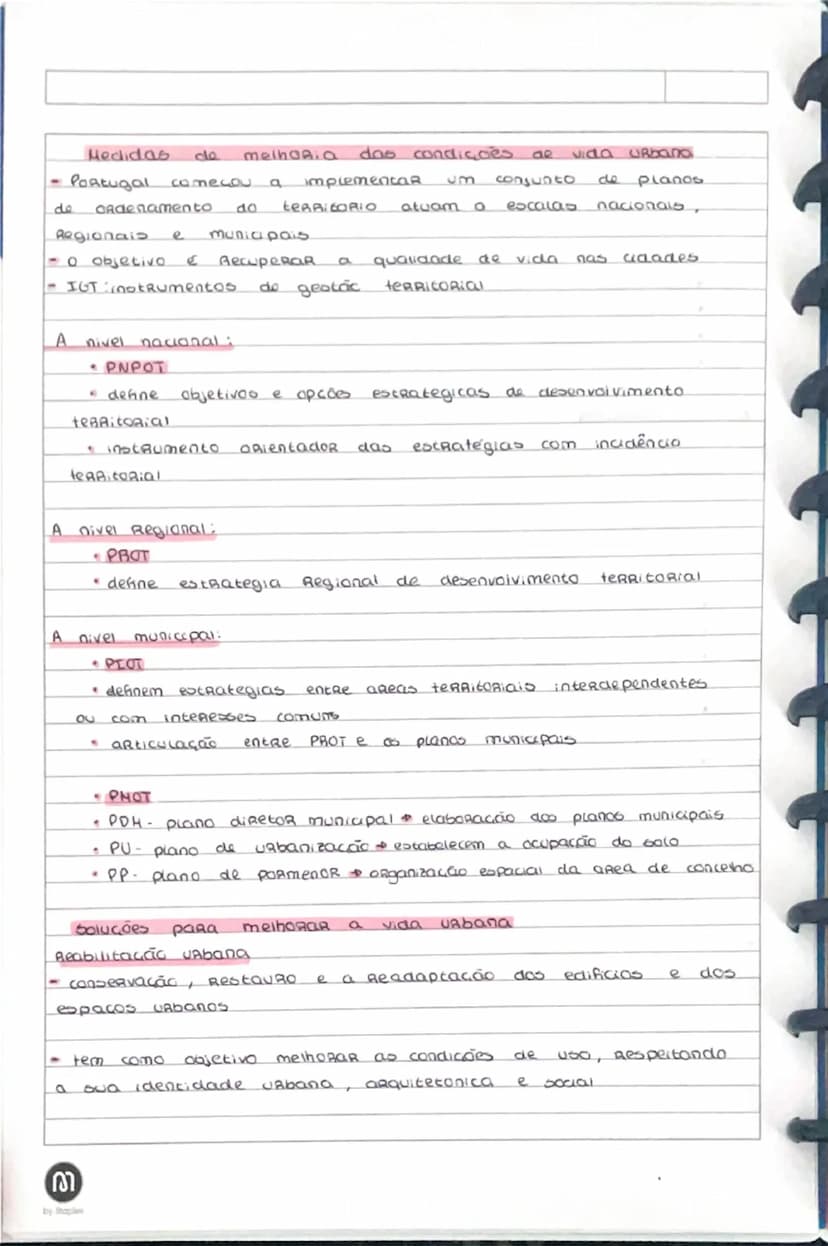 Medidas de melhoria das condições de vida urbana
- Portugal começou a implementar um conjunto de planos
de ordenamento do território atuam a escalas nacionais,
Regionais e municipais
- o objetivo é Recuperar a qualidade de vida nas cidades
- IGT: instrumentos de gestão territorial
A nivel nacional:
• PNPOT
• define objetivos e opções estrategicas de desenvolvimento
territorial
• instrumento orientador das estratégias com incidência
territorial
A nivel Regional:
• PROT
• define estrategia Regional de desenvolvimento territorial
A nivel municipal:
• PIOT
• definem estrategias entre areas territoriais interdependentes
ou com interesses comuns
• articulação entre PROT e os planos municipais
• PMOT
• PDM - plano diretor municipal → elaboração dos planos municipais
• PU - plano de urbanização → estabelecem a ocupação do solo
• PP - plano de pormenor → organização espacial da area de concelho
Soluções para melhorar a vida urbana
Reabilitação urbana
- conservação, restauro e a readaptação dos edificios e dos
espaços urbanos
- tem como objetivo melhorar as condições de uso, respeitando
a sua identidade urbana, arquitetonica e social
M
by Staples